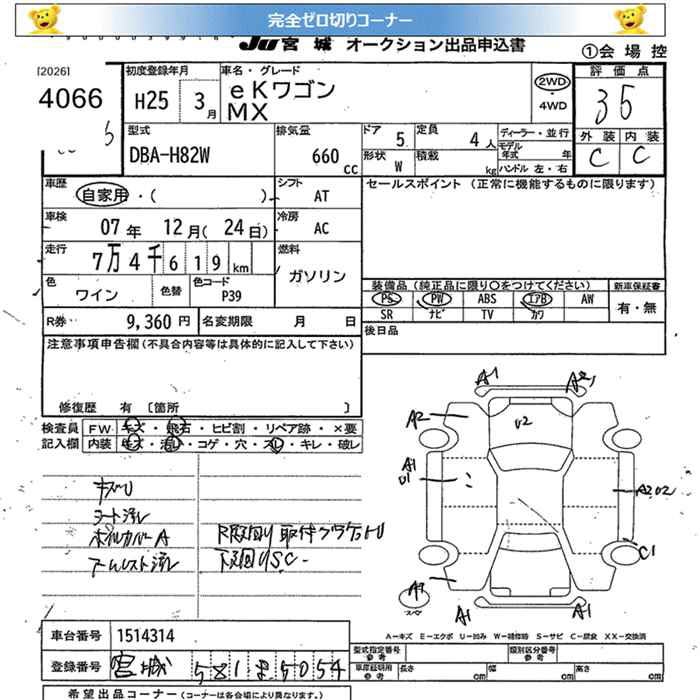 完全ゼロ切りコーナー
JU 宮城 オークション出品申込書
①会場控
[2026]
4066
初度登録年月 H25 3月
車名・グレード eKワゴン MX
2WD ・ 4WD
評価点 35
外装 内装
C C
型式 DBA-H82W
排気量 660 cc
ドア 5 定員 4人
形状 W 積載 kg
ディーラー・並行
モデル年式 年
ハンドル 左・右
車歴 自家用・( )
シフト AT
セールスポイント (正常に機能するものに限ります)
車検 07年 12月(24日)
冷房 AC
走行 7万4千619km
燃料 ガソリン
色 ワイン 色替 色コード P39
装備品 (純正品に限り○をつけてください) 新車保証書
PS PW ABS エアB AW
SR ナビ TV カワ
有・無
R券 9,360円 名変期限 月 日
後日品
注意事項申告欄(不具合内容等は具体的に記入して下さい)
修復歴 有 〔箇所 〕
検査員 FW キズ・飛石・ヒビ割・リペア跡・×要
記入欄 内装 キズ・汚レ・コゲ・穴・スレ・キレ・破レ
キズU
シート汚レ
ホイルカバーA
アームレスト汚レ
下廻りSC
A1 A2 A2 U2 A1 U1 A2U2 C1 A1 A1
スペア
A=キズ E=エクボ U=凹み W=補修跡 S=サビ C=腐食 XX=交換済
車台番号 1514314
登録番号 宮城 581
型式指定番号 参考 類別区分番号 参考
車庫証明用 参考 長さ cm 幅 cm 高さ cm
希望出品コーナー (コーナーは各会場により異なります。)